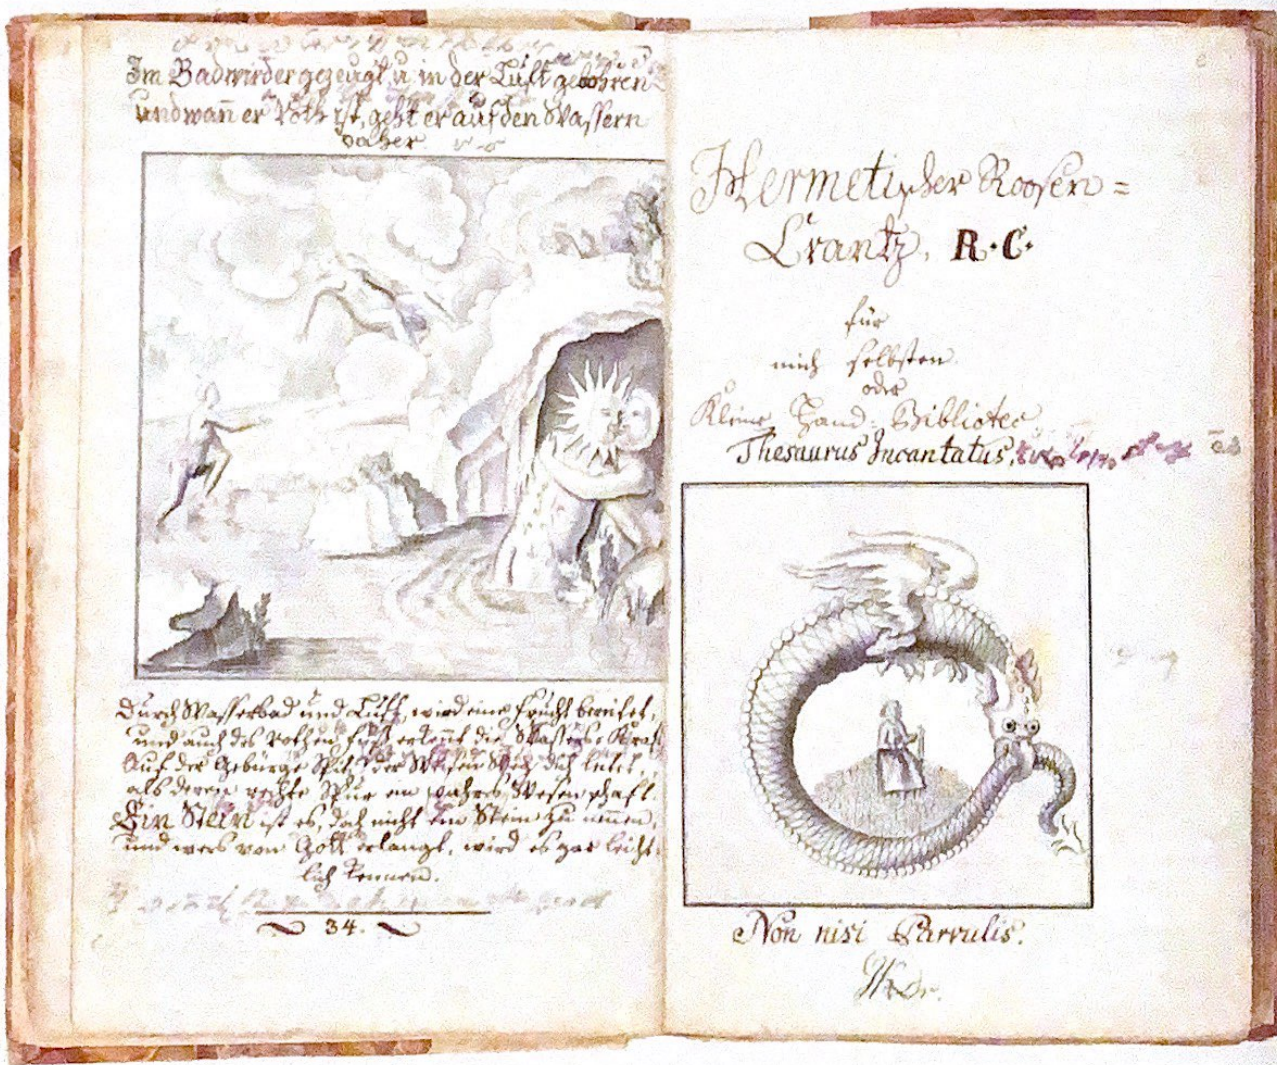 Im Bad wird er gezeugt, u. in der Lüft gebohren
und wañ er Roth ist, geht er auf den Wassern
daher.
Durch Wasserbad und Lüft, wird eine Frücht bereitet,
und auch des rothen Füß erkennt die Wassers Kraft
Auf der Gebürge Spitz der Weisen Weg dich leitet,
als deren rechte Spur ein wahres Wesen schafft.
Ein Stein ist es, doch nicht ein Stein zu nennen,
und wers von Gott erlangt, wird es gar leicht-
lich kennen.
34.
Hermetischer Roosen=
Crantz. R·C·
für
mich selbsten
oder
Kleine Hand=Bibliotec
Thesaurus Incantatus.
Non nisi Parvulis.